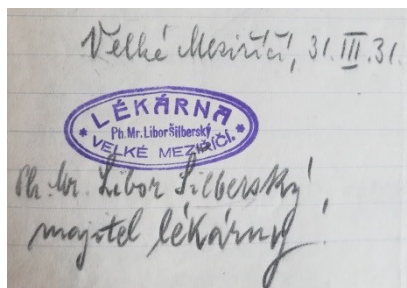 Velké Meziříčí, 31. III. 31.
LÉKÁRNA
Ph. Mr. Libor Šilberský
VELKÉ MEZIŘÍČÍ.
Ph. Mr. Libor Šilberský,
majitel lékárny!